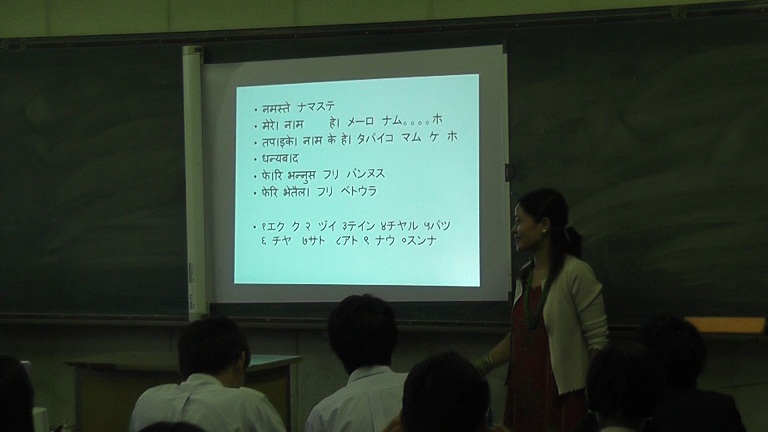 • नमस्ते ナマステ
• मेरो नाम हो メーロ ナム。。。。ホ
• तपाइको नाम के हो タパイコ マム ケ ホ
• धन्यबाद
• फेरि भन्नुस フリ バンヌス
• फेरि भेतैला フリ ベトウラ
• १エク ク २ ヅイ ३テイン ४チヤル ५パツ
६ チヤ ७サト ८アト ९ ナウ ०スンナ